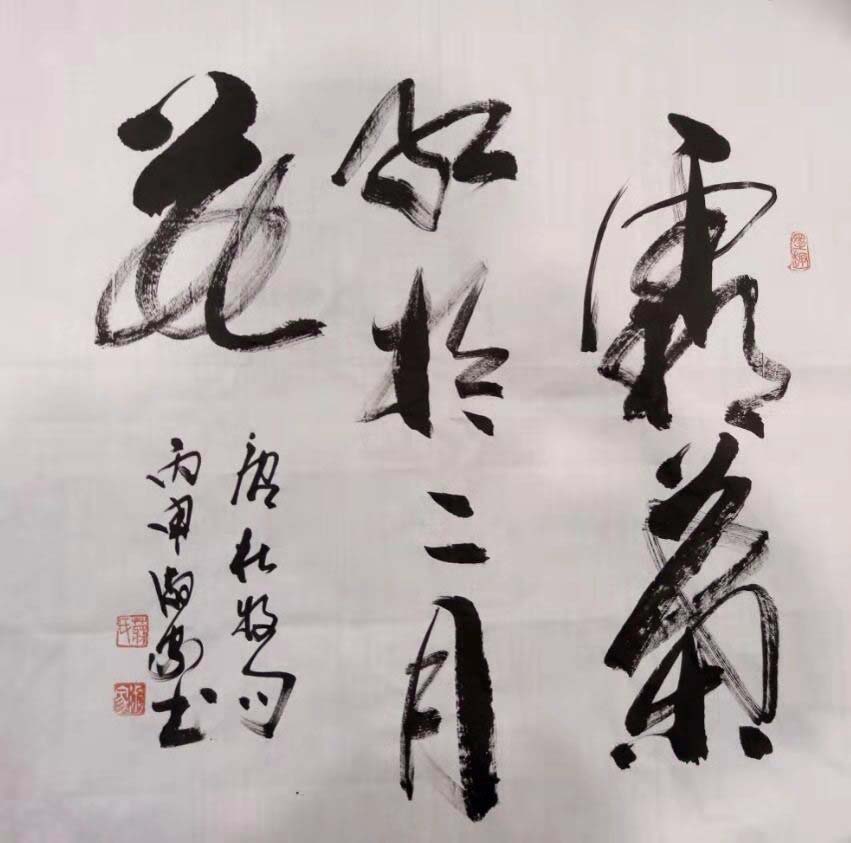 霜葉
紅於二月
花
唐杜牧句
丙申书